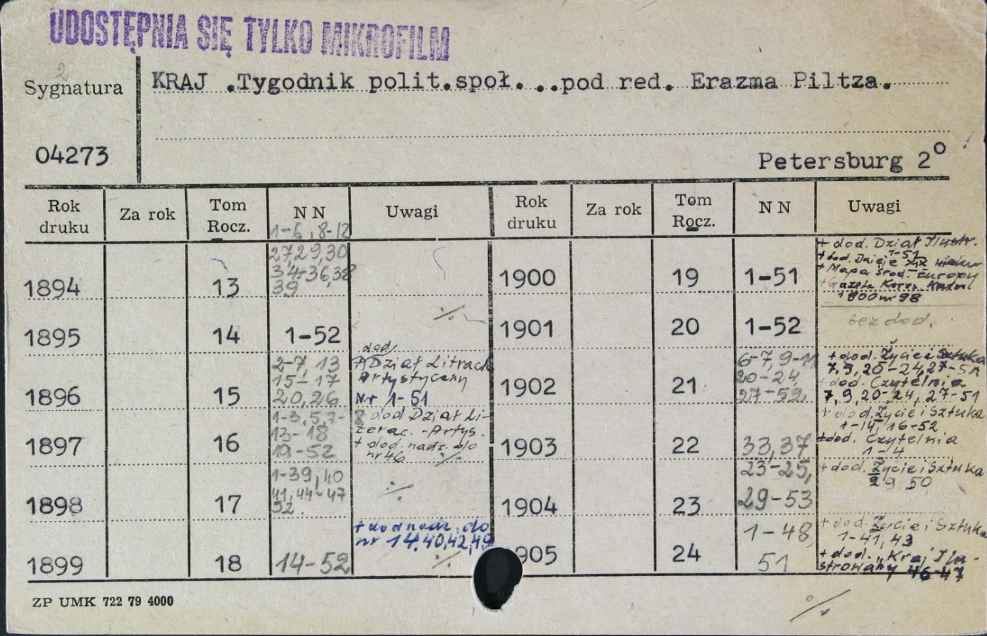 UDOSTĘPNIA SIĘ TYLKO MIKROFILM
Sygnatura
KRAJ .Tygodnik polit.społ. ..pod red. Erazma Piltza.
04273
Petersburg 2°
Rok druku Za rok Tom Rocz. N N Uwagi Rok druku Za rok Tom Rocz. N N Uwagi
1894 13 1-5, 8-12
27 29,30
34-36,38
39
1895 14 1-52
1896 15 2-7, 13
15-17
20,26
dod. Dział Litrack
Artystyczny
Nr 1-51
1897 16
13-18
19-52
dod Dział Li-
terac. -Artys.
+ dod. nadz. do
nr 46
1898 17 1-39, 40
41, 44-47
52
1899 18 14-52
+ dod nadz. do
nr 14,40,42,49
1900 19 1-51
+ dod. Dział Ilustr.
1-51
+ dod. Dzieje XIX
+ Mapa Środ. Europy
1800 nr 98
1901 20 1-52
bez dod.
1902 21 6-7, 9-11
20-24
27-52
+ dod. Życie i Sztuka
7,9,20-24,27-51
+ dod. Czytelnia
7,9,20-24, 27-51
1903 22 33,37
+ dod. Życie i Sztuka
1-14, 16-52
+ dod. Czytelnia
1-4
1904 23 23-25,
29-53
+ dod. Życie i Sztuka
9 50
905 24 1-48
51
+ dod. Życie i Sztuka
1-41, 43
+ dod. "Kraj Ilu-
strowany" 46-47
ZP UMK 722 79 4000